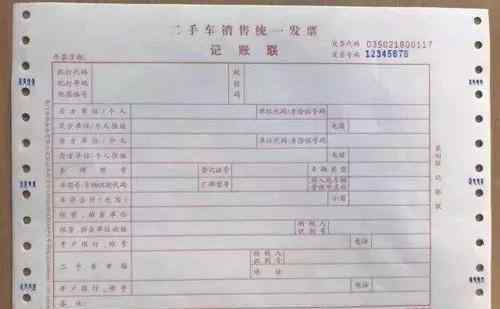 二手车销售统一发票
记账联
发票代码 035021800117
发票号码 12345678
开票日期:
机打代码
机打号码
机器编号
税控码
买方单位/个人 单位代码/身份证号码
买方单位/个人住址 电话
卖方单位/个人 单位代码/身份证号码
卖方单位/个人住址 电话
车牌照号 登记证号 车辆类型
车架号/车辆识别代码 厂牌型号
车价合计(大写) 小写
经营、拍卖单位
经营、拍卖单位地址 纳税人识别号
开户银行、账号 电话
二手车市场 纳税人识别号
地址
开户银行、账号 电话
备注:
记账联